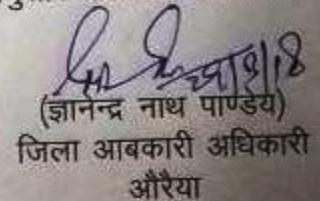 (ज्ञानेन्द्र नाथ पाण्डेय)
जिला आबकारी अधिकारी
औरैया